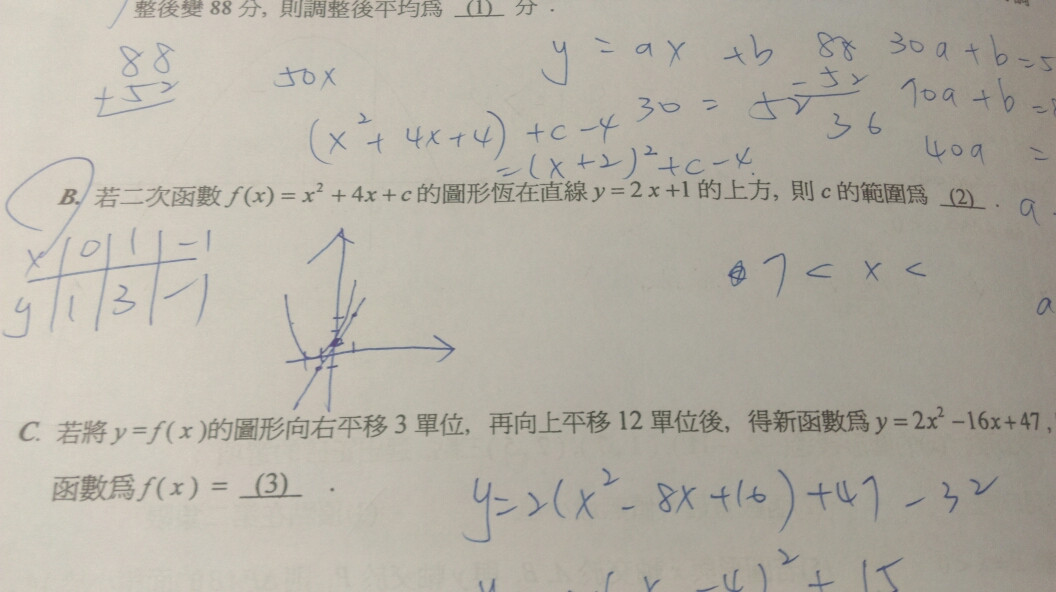 整後變 88 分, 則調整後平均爲 (1) 分.
88
+52
50x
y = ax + b
88
-52
36
30a + b = 5
70a + b =
40a =
a
30 = 52
(x²+ 4x+4) + c - 4
= (x+2)²+c-4.
B. 若二次函數 f(x) = x² + 4x + c 的圖形恆在直線 y = 2x +1 的上方, 則 c 的範圍爲 (2) .
x | 0 | 1 | -1
y | 1 | 3 | -1
7 < x <
a
C. 若將 y = f(x)的圖形向右平移 3 單位, 再向上平移 12 單位後, 得新函數爲 y = 2x² -16x+47,
函數爲 f(x) = (3) .
y=2(x² - 8x+16) +47 -32
-4)² + 15